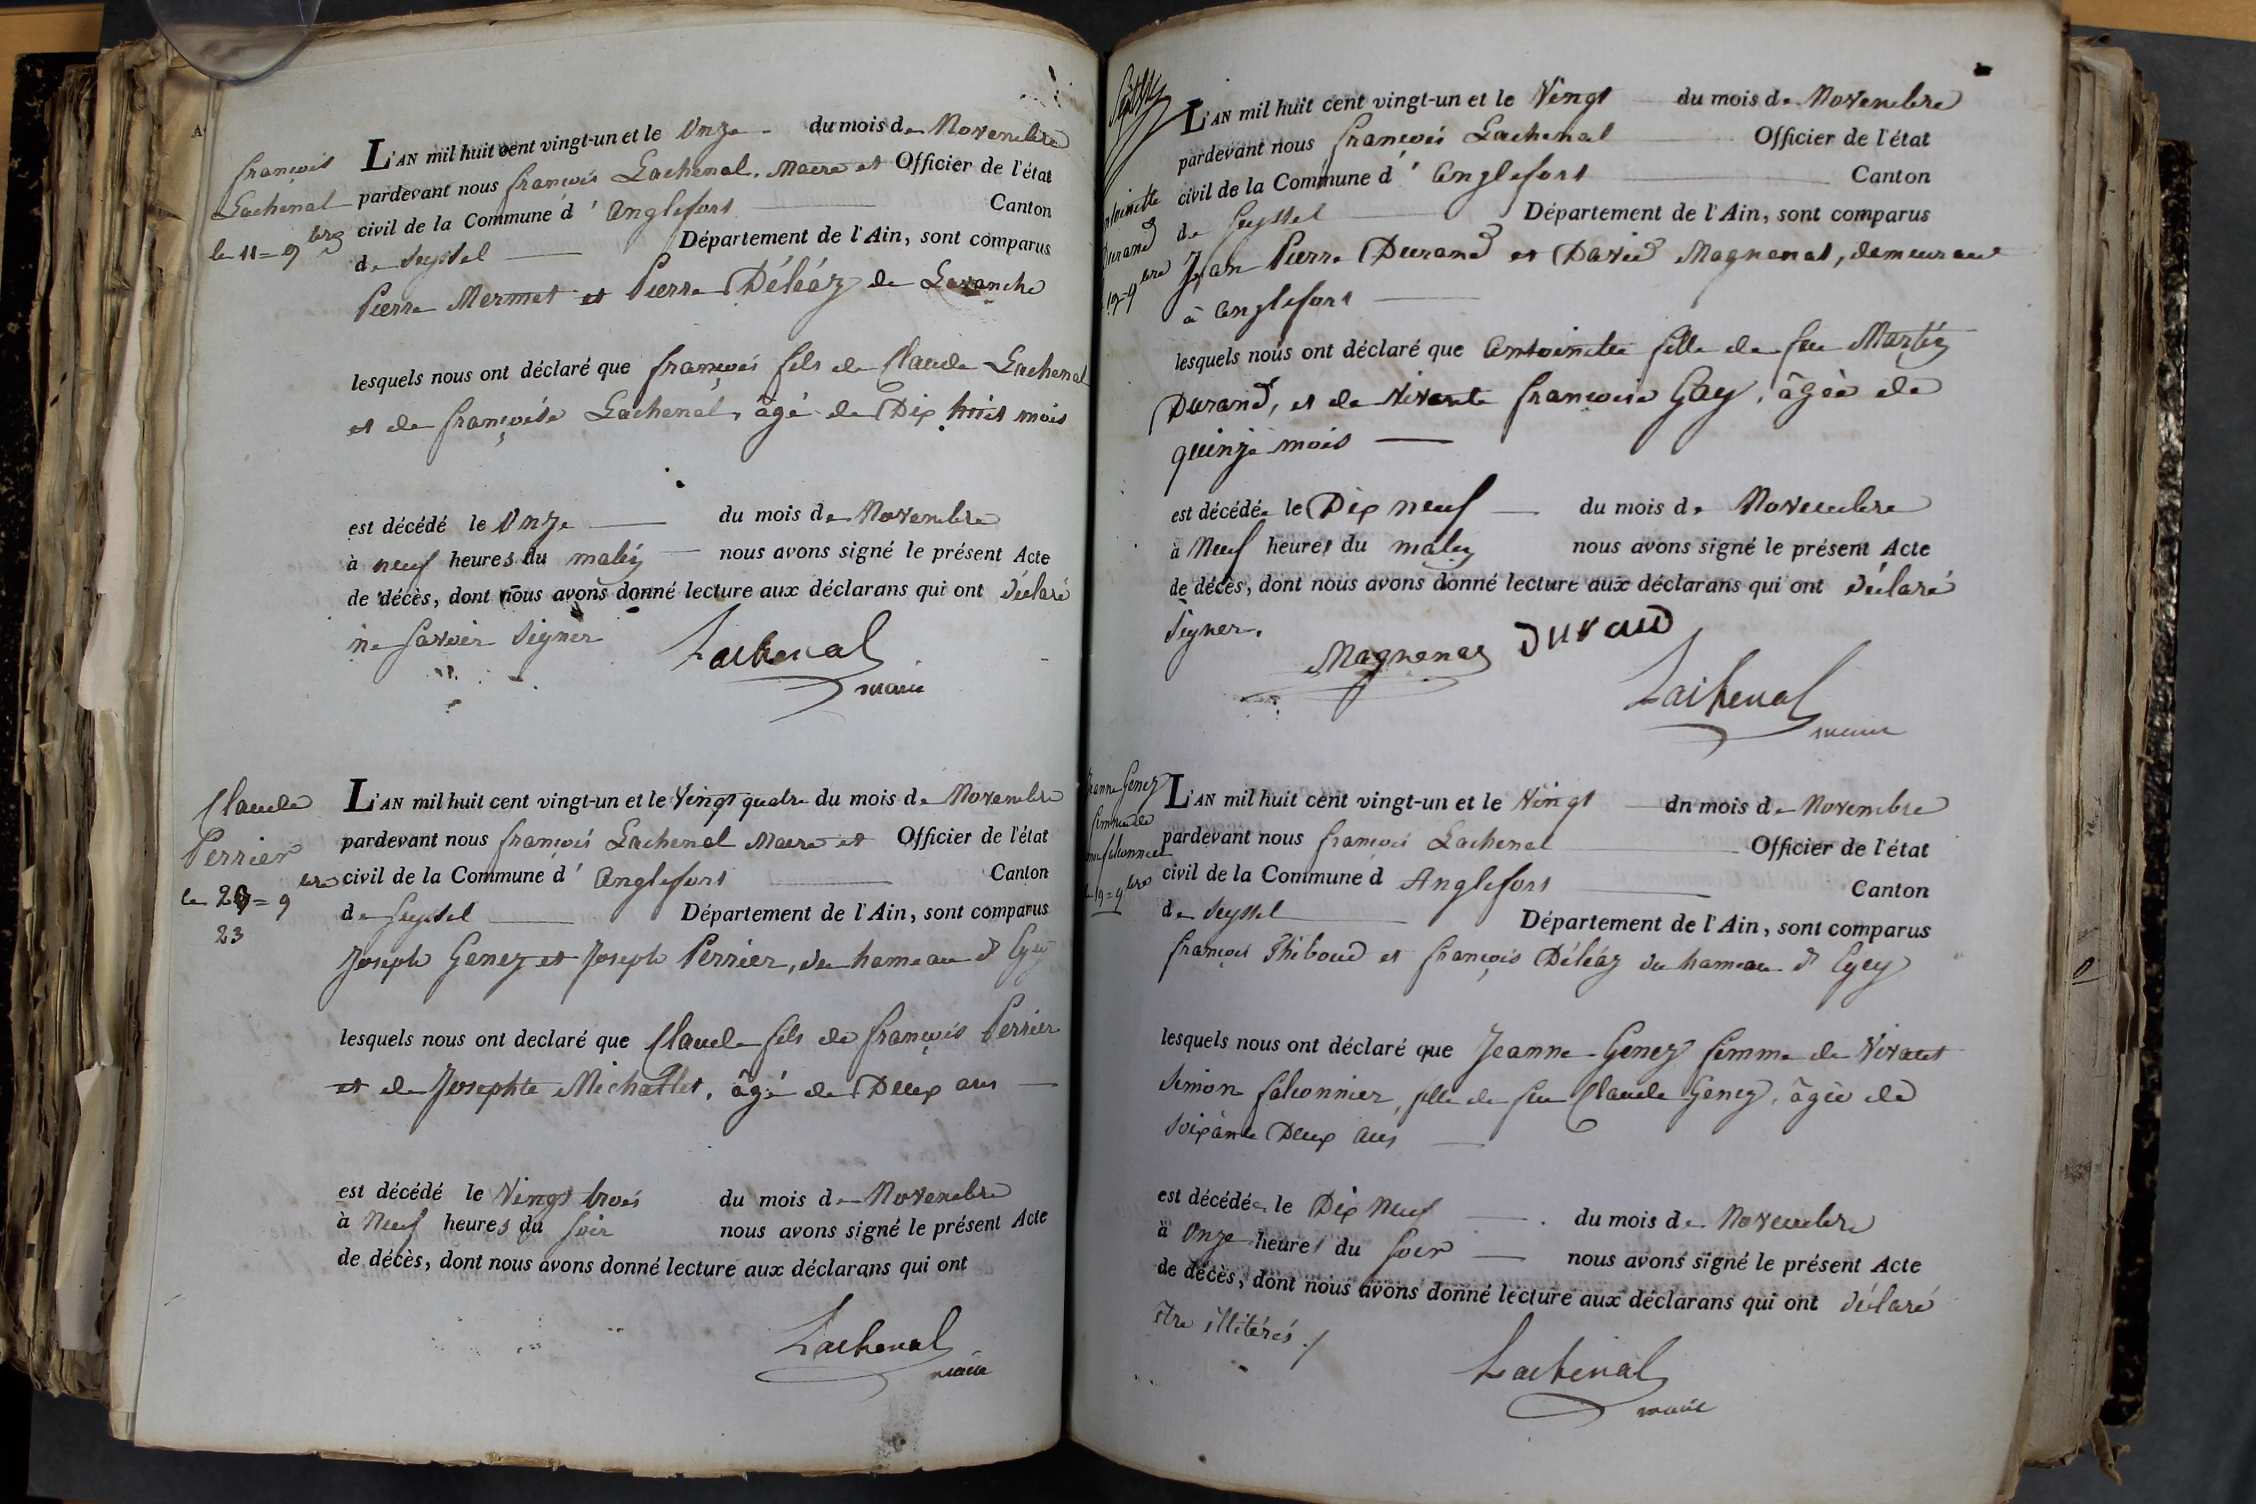 françois
Lachenal
le 11 = 9bre
L'AN mil huit cent vingt-un et le Onze du mois de Novembre
pardevant nous françois Lachenal, Maire et Officier de l'état
civil de la Commune d' Anglefort Canton
de Seyssel Département de l'Ain, sont comparus
Pierre Mermet et Pierre Déléaz de Lavanche
lesquels nous ont déclaré que françois fils de Claude Lachenal
et de françoise Lachenal, âgé de Dix huit mois
est décédé le Onze du mois de Novembre
à neuf heures du matin nous avons signé le présent Acte
de décès, dont nous avons donné lecture aux déclarans qui ont déclaré
ne savoir signer
Lachenal
maire
Claude
Perrier
le 20 = 9bre
23
L'AN mil huit cent vingt-un et le Vingt quatre du mois de Novembre
pardevant nous françois Lachenal Maire et Officier de l'état
civil de la Commune d' Anglefort Canton
de Seyssel Département de l'Ain, sont comparus
Joseph Genez et Joseph Perrier, du hameau d'Eyey
lesquels nous ont declaré que Claude fils de françois Perrier
et de Josephte Michallet, âgé de Deux ans
est décédé le Vingt trois du mois de Novembre
à Neuf heures du soir nous avons signé le présent Acte
de décès, dont nous avons donné lecture aux déclarans qui ont
Lachenal
maire
Antoinette
Durand
19 = 9bre
L'AN mil huit cent vingt-un et le Vingt du mois de Novembre
pardevant nous françois Lachenal Officier de l'état
civil de la Commune d' Anglefort Canton
de Seyssel Département de l'Ain, sont comparus
Jean Pierre Durand et David Magnenat, demeurant
à Anglefort
lesquels nous ont déclaré que Antoinette fille de feu Martin
Durand, et de vivante françoise Gay, âgée de
quinze mois
est décédée le Dix neuf du mois de Novembre
à Neuf heures du matin nous avons signé le présent Acte
de décès, dont nous avons donné lecture aux déclarans qui ont déclaré
signer.
Magnenat Durand
Lachenal
maire
Jeanne Genez
femme de
Simon falconnier
le 19 = 9bre
L'AN mil huit cent vingt-un et le Vingt dn mois de Novembre
pardevant nous françois Lachenal Officier de l'état
civil de la Commune d Anglefort Canton
de Seyssel Département de l'Ain, sont comparus
françois Thiboud et françois Déléaz du hameau d'Eyey
lesquels nous ont déclaré que Jeanne Genez femme de Vivant
Simon falconnier, fille de feu Claude Genez, âgée de
soixante Deux ans
est décédée le Dix Neuf du mois de Novembre
à Onze heures du soir nous avons signé le présent Acte
de décès, dont nous avons donné lecture aux déclarans qui ont déclaré
être illitérés ./
Lachenal
maire